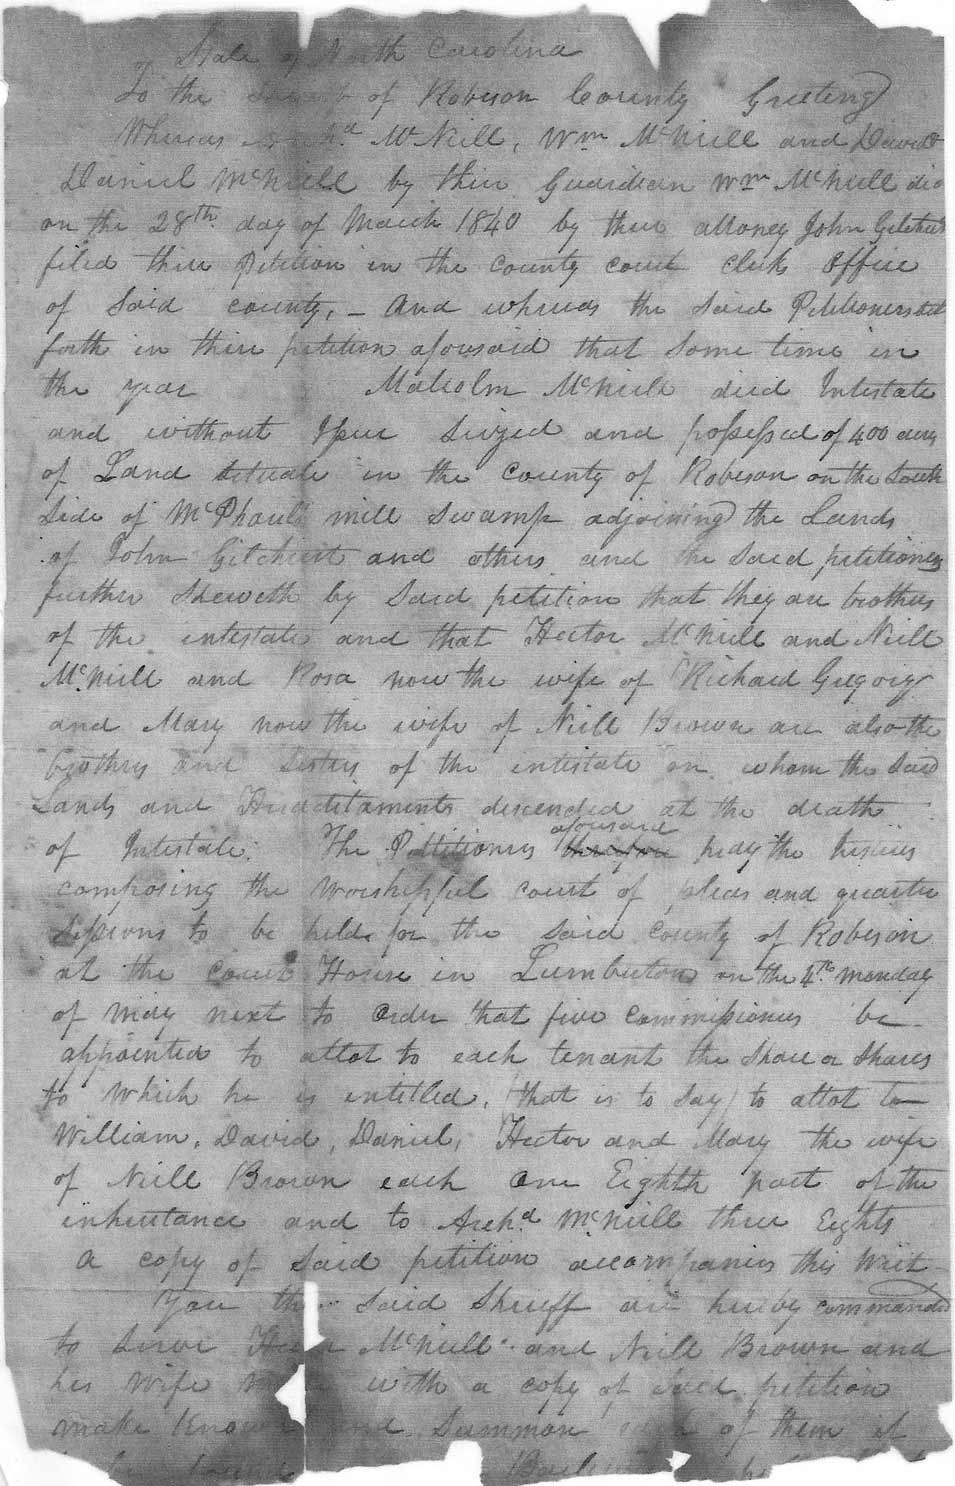 State of North Carolina
To the Sheriff of Robeson County Greeting
Whereas Archd. McNeill, Wm McNeill and David
Daniel McNeill by their Guardian Wm McNeill did
on the 28th day of March 1840 by their attorney John Gilchrist
filed their Petition in the county court clerk office
of said county, – And whereas the said Petitioners set
forth in their petition aforesaid that some time in
the year Malcolm McNeill died Intestate
and without Issue Siezed and possessed of 400 acres
of Land situate in the county of Robeson on the South
Side of McPhauls mill swamp adjoining the Lands
of John Gilchrist and others and the said petitioners
further sheweth by said petition that they are brothers
of the intestate and that Hector McNeill and Neill
McNeill and Rosa now the wife of Richard Gregory
and Mary now the wife of Neill Brown are also the
brothers and sisters of the intestate on whom the said
Lands and Heriditaments descended at the death
of Intestate. The Petitioners aforesaid therefore pray the
composing the worshipful court of pleas and quarter
sessions to be held for the said county of Robeson
at the court House in Lumberton on the 4th monday
of may next to order that five commissioners be
appointed to attot to each tenant the share or shares
to which he is entitled, that is to say to attot to
William, David, Daniel, Hector and Mary the wife
of Neill Brown each One Eighth part of the
inheritance and to Archd McNeill three Eights
A copy of said petition accompanies this writ
You the said Sheriff are hereby commanded
to serve Hector McNeill and Neill Brown and
his wife with a copy of said petition
make known and Summon each of them if